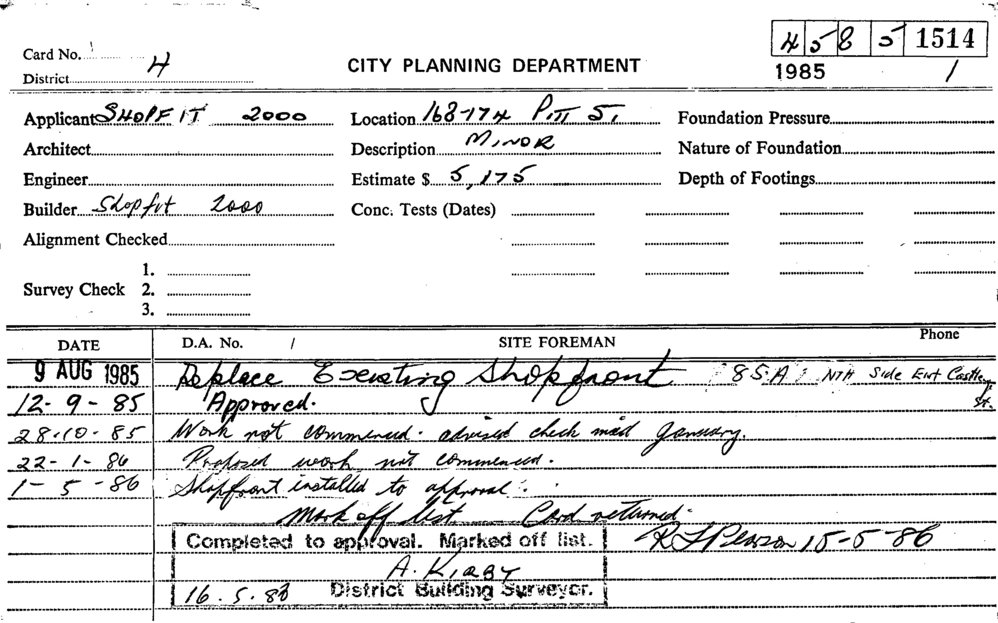 4 5 8 5 1514
Card No.
District 4
CITY PLANNING DEPARTMENT
1985 /
Applicant SHOPFIT 2000 Location 168-174 PITT ST. Foundation Pressure
Architect Description MINOR Nature of Foundation
Engineer Estimate $ 5,175 Depth of Footings
Builder Shopfit 2000 Conc. Tests (Dates)
Alignment Checked
1.
Survey Check 2.
3.
DATE D.A. No. / SITE FOREMAN Phone
9 AUG 1985 Replace Existing Shopfront 85A NTH Side Ent Castlereagh St.
12-9-85 Approved.
28.10.85 Work not commenced. advised check mid January.
22-1-86 Proposed work not commenced.
1-5-86 Shopfront installed to approval.
Mark off list. Card returned.
Completed to approval. Marked off list. R J Pearson 15-5-86
A. KIRBY
16.5.86 District Building Surveyor.